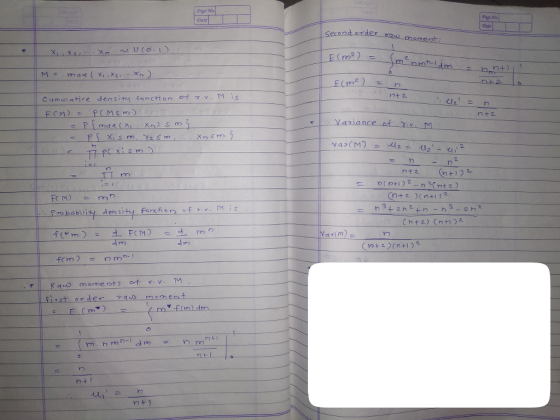 Page No.
Date
* x1, x2, ... xn ~ U(0,1).
M = max(x1, x2, ... xn)
Cumulative density function of r.v. M is
F(m) = P(M≤m)
= P{max(x1 ... xn) ≤ m}
= P{x1 ≤ m, x2 ≤ m, ... xn ≤ m}
= n∏i=1 P(xi ≤ m)
= n∏i=1 m
F(M) = m^n.
∴ Probability density function of r.v. M is
f(m) = d/dm F(M) = d/dm m^n
f(m) = n m^n-1
* Raw moments of r.v. M.
First order raw moment
= E(m) = ∫0^1 m f(m) dm
= ∫0^1 m n m^n-1 dm = n m^n+1 / n+1 |0^1
= n / n+1
∴ u1' = n / n+1
Page No.
Date
Second order raw moment:
E(m²) = ∫0^1 m² n m^n-1 dm = n m^n+2 / n+2 |0^1
E(m²) = n / n+2 ∴ u2' = n / n+2
* Variance of r.v. M
var(M) = u2 = u2' - u1'²
= n / n+2 - n² / (n+1)²
= n(n+1)² - n²(n+2) / (n+2)(n+1)²
= n³ + 2n² + n - n³ - 2n² / (n+2)(n+1)²
var(m) = n / (n+2)(n+1)²